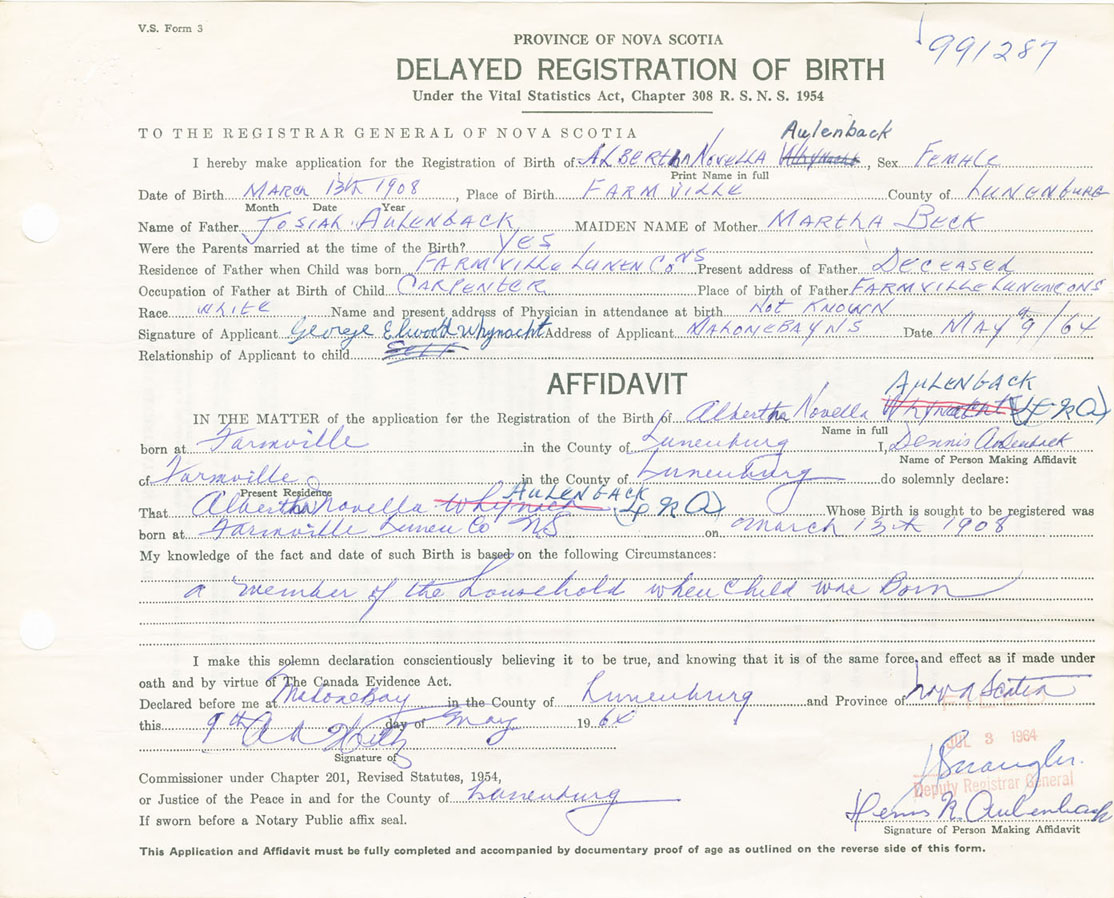 V.S. Form 3
991287
PROVINCE OF NOVA SCOTIA
DELAYED REGISTRATION OF BIRTH
Under the Vital Statistics Act, Chapter 308 R. S. N. S. 1954
TO THE REGISTRAR GENERAL OF NOVA SCOTIA
Aulenback
I hereby make application for the Registration of Birth of ALBERtha Novella Whynacht, Sex FEMALE
Print Name in full
Date of Birth MARCH 13th 1908 Place of Birth FARMVILLE County of LUNENBURG
Month Date Year
Name of Father JOSIAH AULENBACK MAIDEN NAME of Mother MARTHA BECK
Were the Parents married at the time of the Birth? YES
Residence of Father when Child was born FARMVILLE LUNEN CO NS Present address of Father DECEASED
Occupation of Father at Birth of Child CARPENTER Place of birth of Father FARMVILLE LUNEN CO NS
Race WHITE Name and present address of Physician in attendance at birth NOT KNOWN
Signature of Applicant George Elwood Whynacht Address of Applicant MAHONE BAY NS Date MAY 9/64
Relationship of Applicant to child Self
AFFIDAVIT
AULENBACK
IN THE MATTER of the application for the Registration of the Birth of Albertha Novella Whynacht
Name in full
born at Farmville in the County of Lunenburg I, Dennis Aulenback
Name of Person Making Affidavit
of Farmville in the County of Lunenburg do solemnly declare:
Present Residence
AULENBACK
That Albertha Novella Whose Birth is sought to be registered was
born at Farmville Lunen Co NS on March 13th 1908
My knowledge of the fact and date of such Birth is based on the following Circumstances:
a member of the household when Child was Born
I make this solemn declaration conscientiously believing it to be true, and knowing that it is of the same force and effect as if made under
oath and by virtue of The Canada Evidence Act.
Declared before me at Mahone Bay in the County of Lunenburg and Province of Nova Scotia
this 9th day of May 1964
JUL 3 1964
Signature of
Commissioner under Chapter 201, Revised Statutes, 1954,
Deputy Registrar General
or Justice of the Peace in and for the County of Lunenburg
If sworn before a Notary Public affix seal.
Dennis N. Aulenback
Signature of Person Making Affidavit
This Application and Affidavit must be fully completed and accompanied by documentary proof of age as outlined on the reverse side of this form.